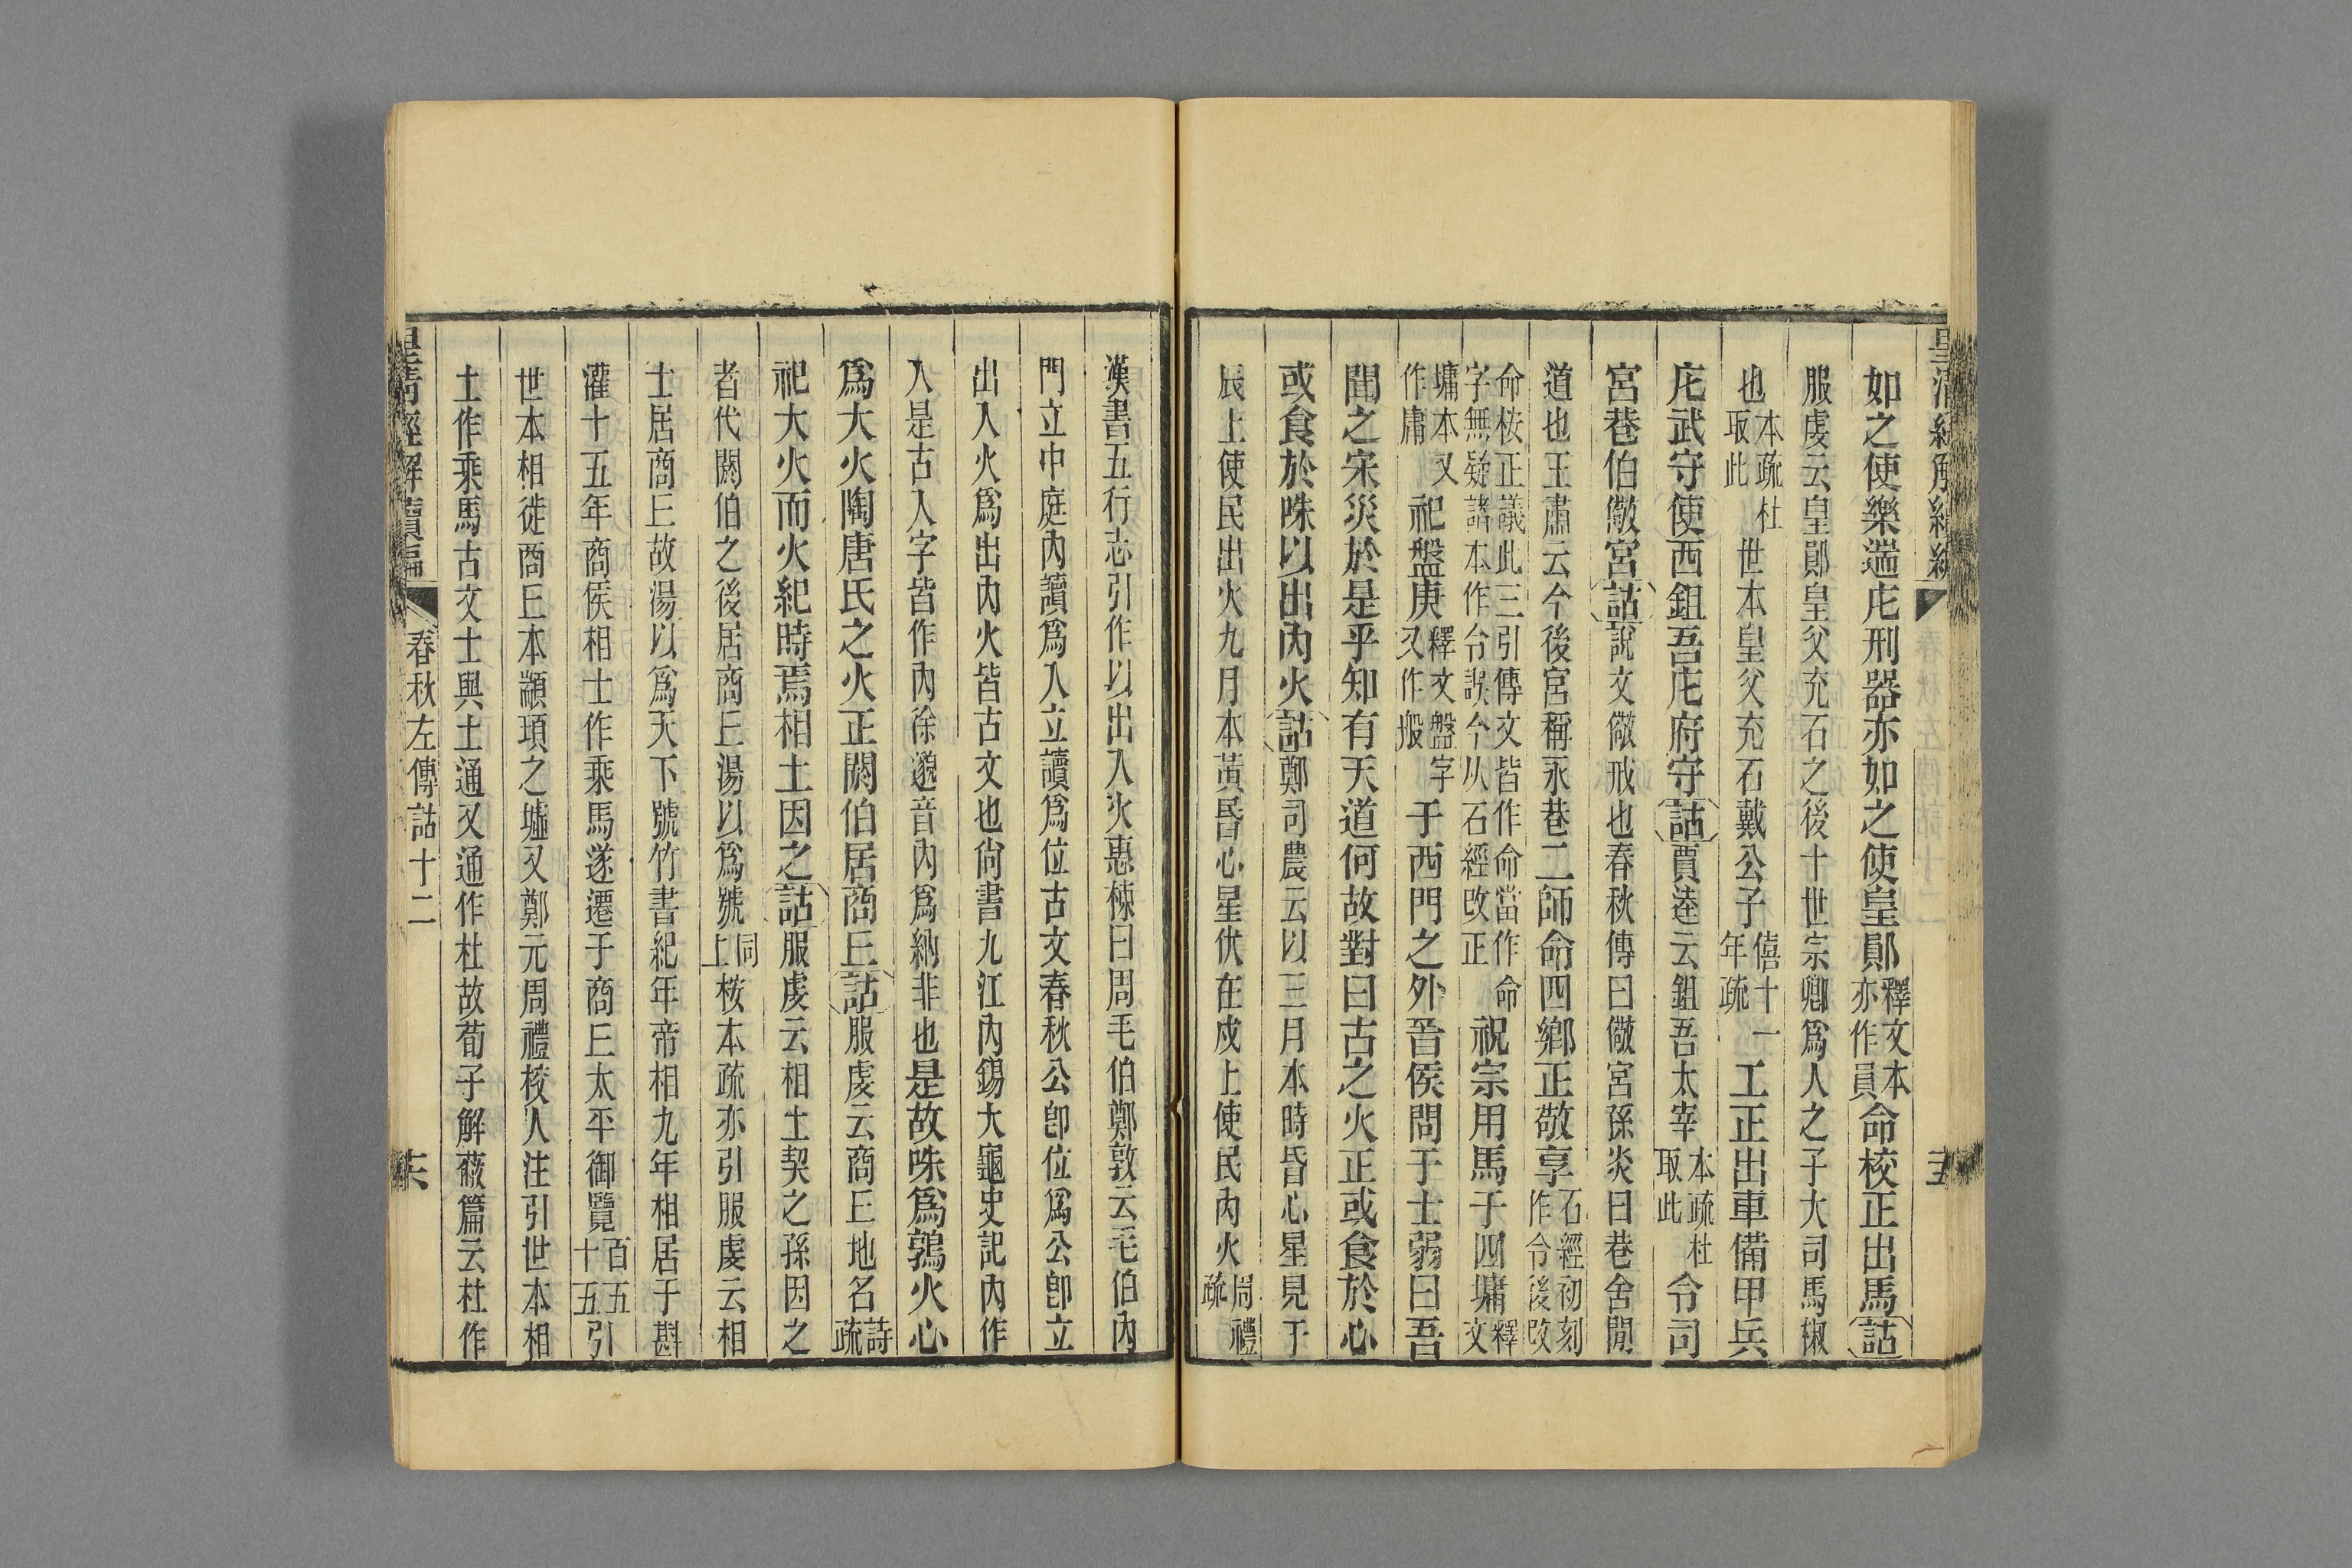 如之使樂遄庀刑器亦如之使皇鄖釋文本亦作員命校正出馬詁
服虔云皇鄖皇父充石之後十世宗卿爲人之子大司馬椒
也本疏杜取此世本皇父充石戴公子僖十一年疏工正出車備甲兵
庀武守使西鉏吾庀府守詁賈逵云鉏吾太宰本疏杜取此令司
宮巷伯儆宮詁說文儆戒也春秋傳曰儆宮孫炎曰巷舍閒
道也王肅云今後宮稱永巷二師命四鄉正敬享石經初刻作令後改
命桉正議此三引傳文皆作命當作命字無疑諸本作令誤今从石經改正祝宗用馬于四墉釋文
墉本又作庸祀盤庚釋文盤字又作般于西門之外晉侯問于士弱曰吾
聞之宋災於是乎知有天道何故對曰古之火正或食於心
或食於咮以出內火詁鄭司農云以三月本時昏心星見于
辰上使民出火九月本黃昏心星伏在戍上使民內火周禮疏
漢書五行志引作以出入火惠棟曰周毛伯鄭敦云毛伯內
門立中庭內讀爲入立讀爲位古文春秋公卽位爲公卽立
出入火爲出內火皆古文也尙書九江內錫大龜史記內作
入是古入字皆作內徐邈音內爲納非也是故咮爲鶉火心
爲大火陶唐氏之火正閼伯居商丘詁服虔云商丘地名詩疏
祀大火而火紀時焉相土因之詁服虔云相土契之孫因之
者代閼伯之後居商丘湯以爲號同上桉本疏亦引服虔云相
士居商丘故湯以爲天下號竹書紀年帝相九年相居于斟
灌十五年商侯相士作乘馬遂遷于商丘太平御覽百五十五引
世本相徙商丘本顓頊之墟又鄭元周禮校人注引世本相
土作乘馬古文士與土通又通作杜故荀子解蔽篇云杜作
皇清經解續編
春秋左傳詁十二